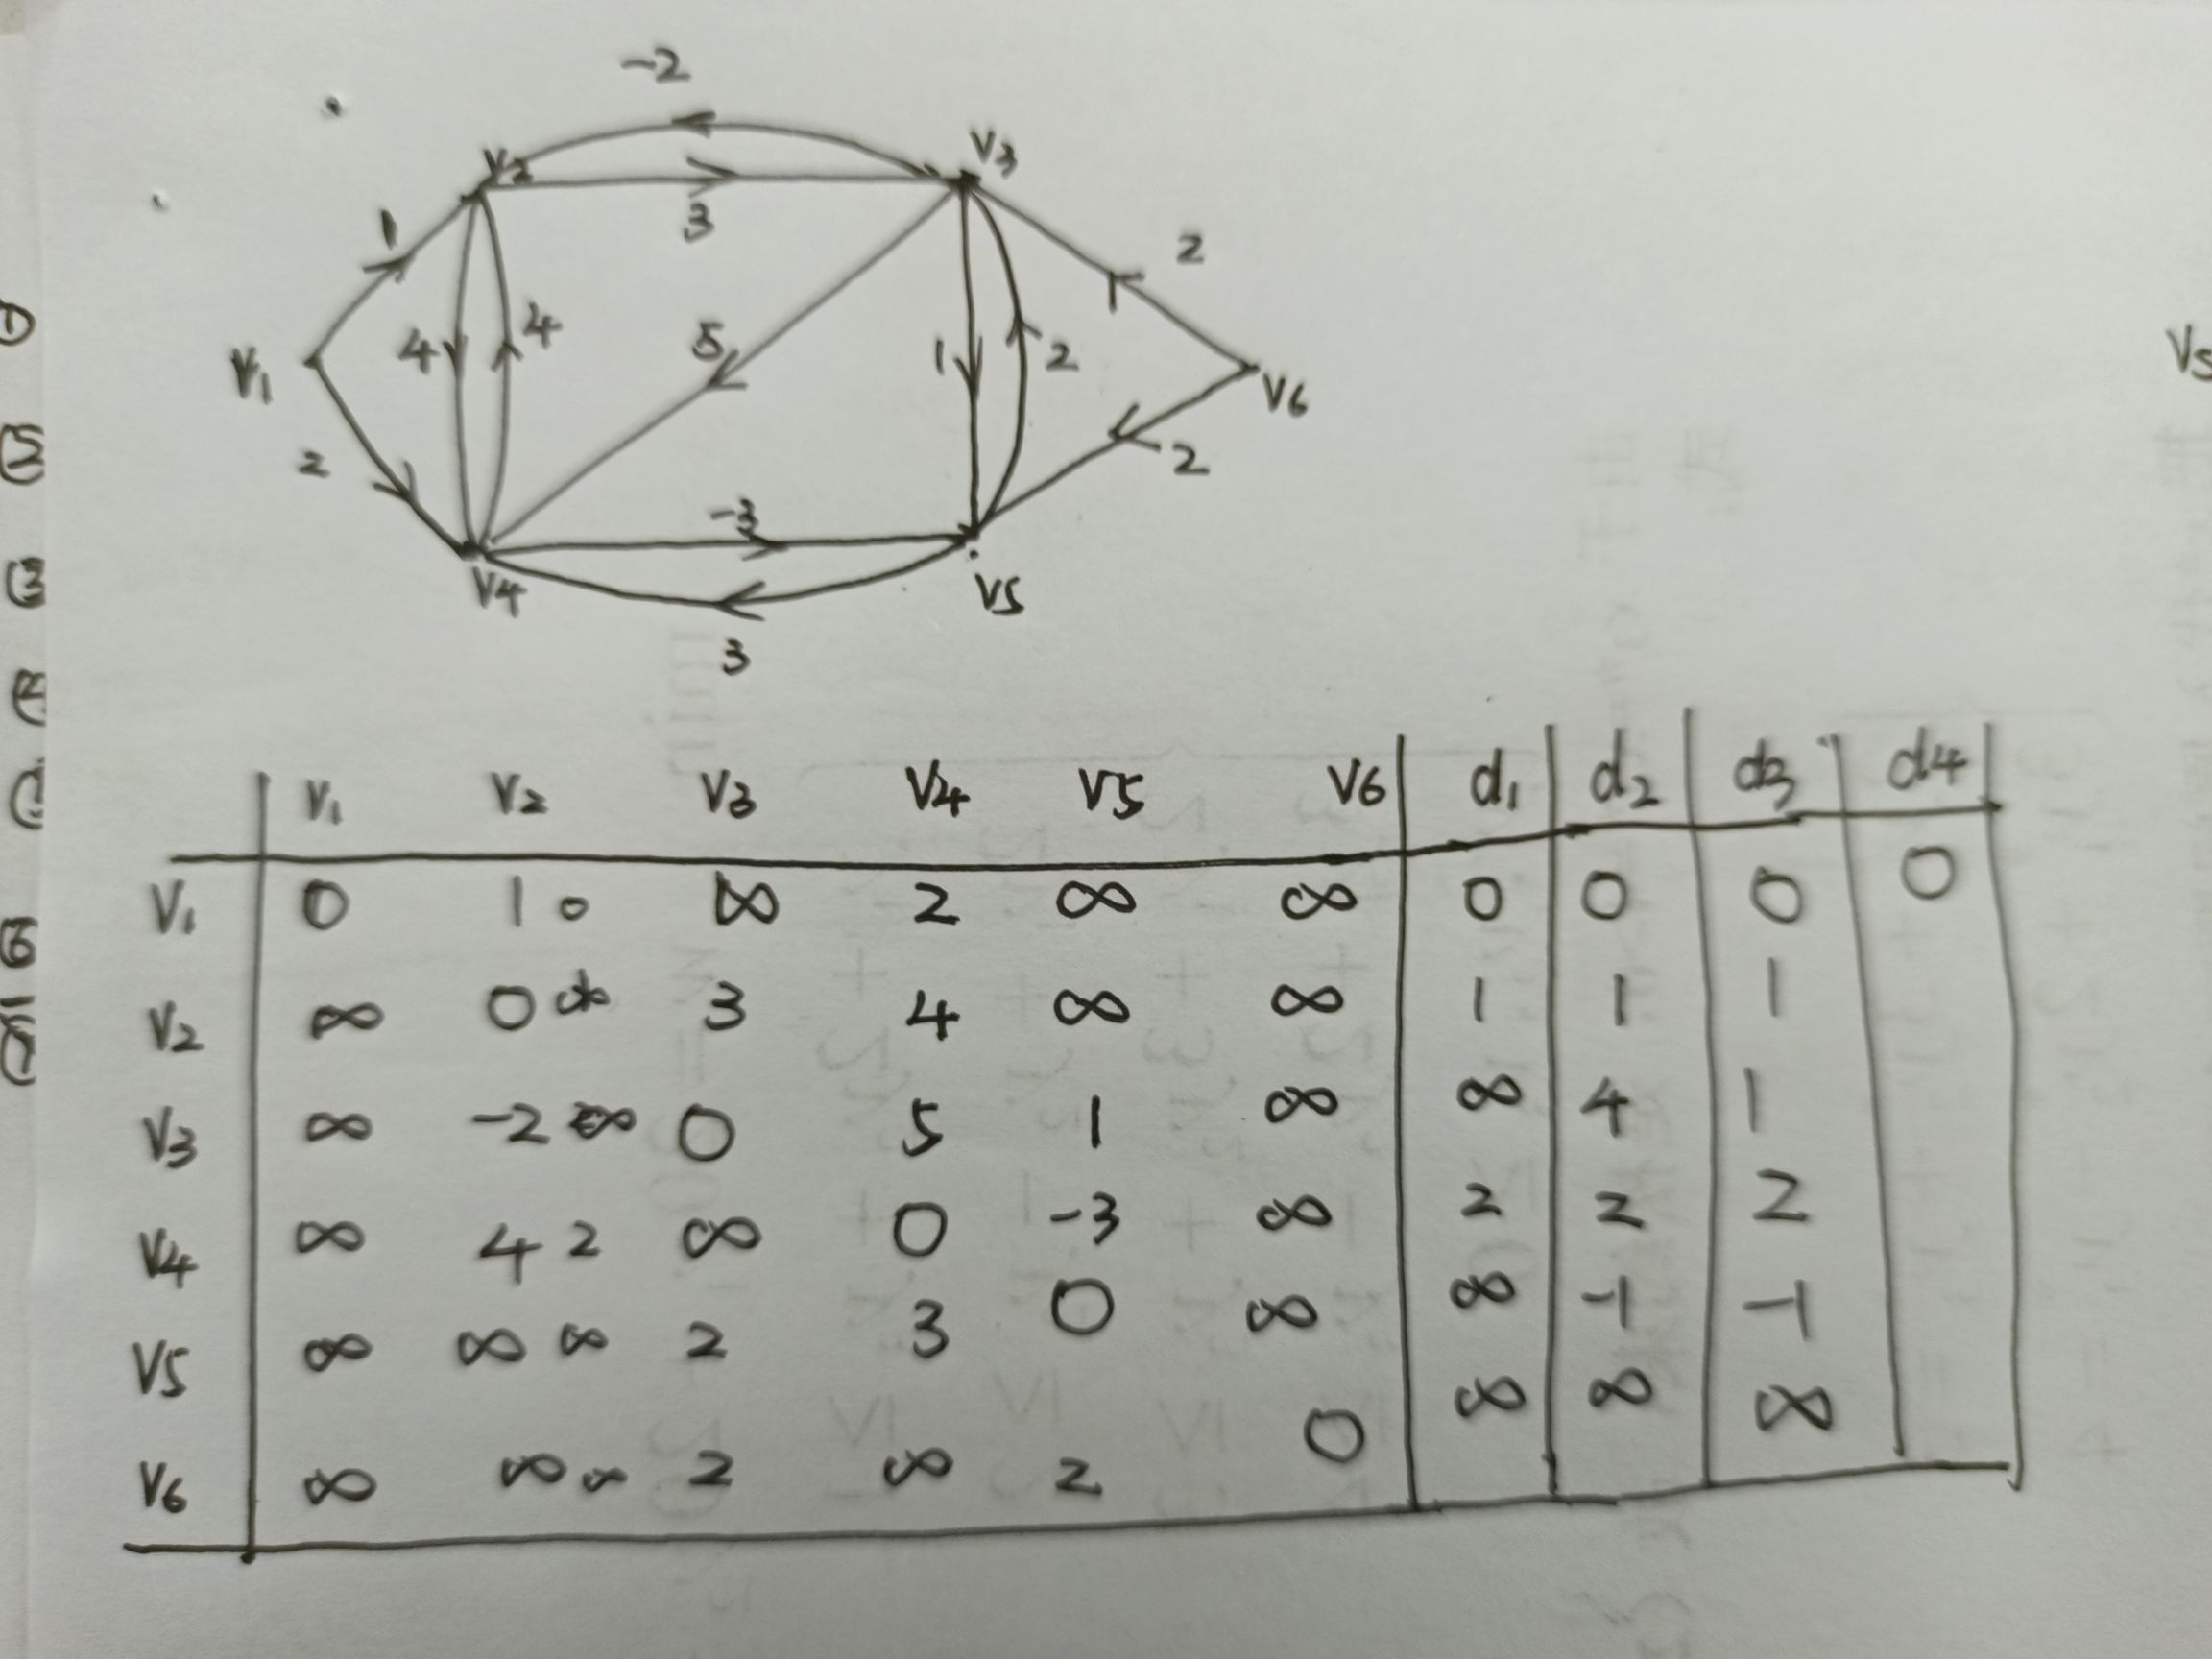 -2
V2 V3
1 3 2
4 4 5 1 2
V1 V6
2 -3 2
V4 V5
3
V1 V2 V3 V4 V5 V6 d1 d2 d3 d4
V1 0 1 0 ∞ 2 ∞ ∞ 0 0 0 0
V2 ∞ 0 3 4 ∞ ∞ 1 1 1
V3 ∞ -2 ∞ 0 5 1 ∞ ∞ 4 1
V4 ∞ 4 2 ∞ 0 -3 ∞ 2 2 2
V5 ∞ ∞ ∞ 2 3 0 ∞ ∞ -1 -1
V6 ∞ ∞ ∞ 2 ∞ 2 0 ∞ ∞ ∞